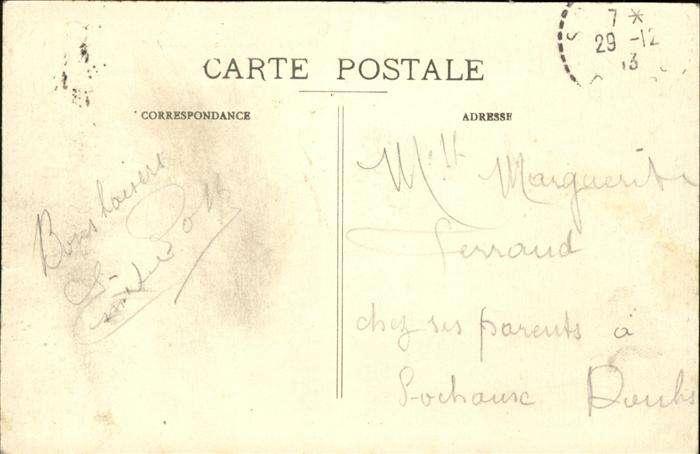 CARTE POSTALE
7 *
29 -12
13
CORRESPONDANCE
Bons baisers
ADRESSE
Mlle Marguerite
Perraud
chez ses parents à
Sochaux Doubs